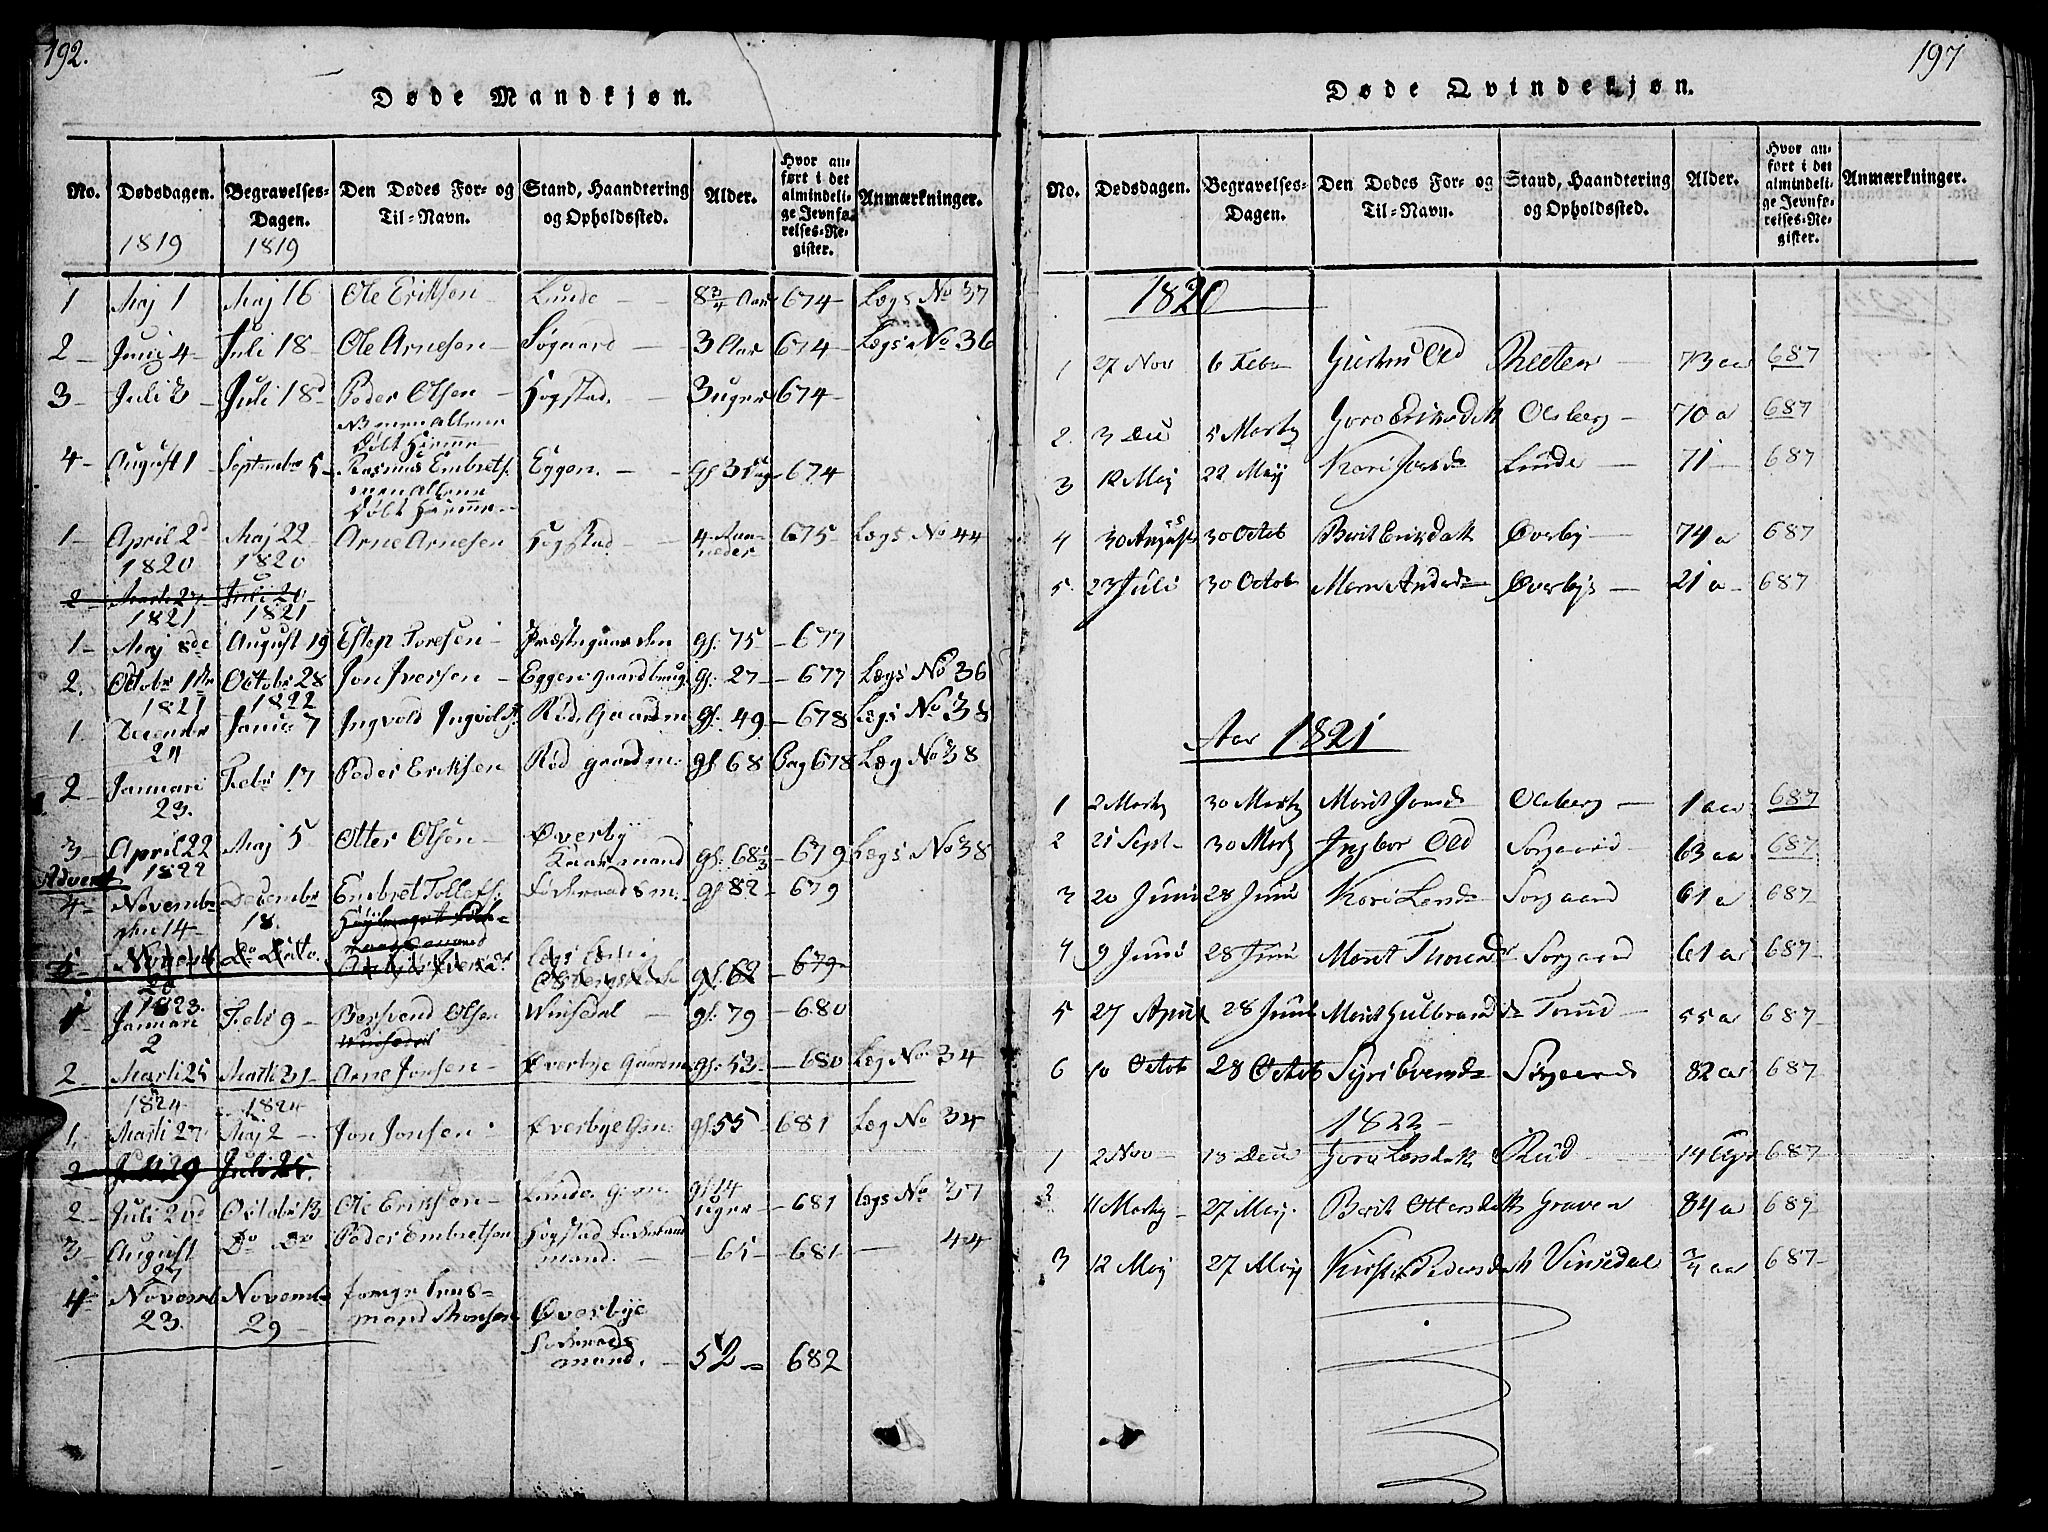 192.
Døde Mandkjøn.
No. Dødsdagen. Begravelses-Dagen. Den Dødes For- og Til-Navn. Stand, Haandtering og Opholdssted. Alder. Hvor anført i det almindelige Jevnførelses-Register. Anmærkninger.
1819 1819
1 Maj 1 Maj 16 Ole Eriksen Lunde 8 3/4 Aar 674 Lægs No 37
2 Junij 4 Juli 18 Ole Arnesen Søgaard 3 Aar 674 Lægs No 36
3 Juli 3 Juli 18d Peder Olsen Hogstad. 3 uger 674
NB
Døbt Hiemme
4 August 1 Septembr 5 Rasmus Embrets. Eggen. gl. 3 674
Døbt Hiemme
1 April 2d Maj 22 Arne Arnesen Hogstad 4 Maaneder 675 Lægs No 44
1820 1820
2 Marti 27 Juli 20
1821 1821
1 Maj 8de August 19 Estep Toresen Præstegaarden gl. 75 677
2. Octobr 1 Octobr 28 Jon Iversen Eggen gaardbrug. gl. 27 677 Lægs No 36
1821 1822
1. Decembr 24 Januar 7 Ingvold Ingvolds. Rød. Gaardm gl. 49 678 Lægs No 38
2 Januari 23. Febr 17 Peder Eriksen Rød gaardm: gl 68 Pag 678 Læg No 38
3 April 22 Maj 5 Otter Olsen Øverby Kaarmand gl. 68 1/3 679 Lægs No 38
Advent 1822
4 Novembr den 14 Decembr 18. Embret Tollefs: Foderaadsm: gl 82 679
5 Novemb 26 Do Dito. gl. 62 679
1823.
1 Januari 2 Febr 9 Bersvend Olsen Winsedal gl. 79 680
Winsedal
2 Marti 25 Marti 31 Arne Jonsen Øverbye Gaarm gl. 53 680 Læg No 34
1824 1824
1. Marti 27 Maj 2 Jon Jonsen Øverbye Gm: gl 55 681 Læg No 34
2 Juli 29 Juli 25.
2 Juli 20d Octobr 13 Ole Eriksen Lunde gl 14 uger 681 Lægs No 37
3 August 27 Do Do Peder Embretsen Hogstad Foderaadmand. 65 681 44
4 Novemb 23. Novembr 29 Øverbye Foderaadsmand. 52 682
197
Døde Qvindekjøn.
No. Dødsdagen. Begravelses-Dagen. Den Dødes For- og Til-Navn. Stand, Haandtering og Opholdssted. Alder. Hvor anført i det almindelige Jevnførelses-Register. Anmærkninger.
1820
1 27 Nov 6 Febr Old Reeten 73 aa 687
2. 3 Dec 5 Martz Goro Eriksdatt Olsberg 70 a 687
3 12 Maj 22 Maij Kari Jonsd Lunde 71 687
4 30 August 30 Octob Berit Eriksdatt Øverby 74 a 687
5. 23 Juli 30 Octob Maren Andersd Øverby 21 a 687
Aar 1821
1 2 Martz 30 Martz Marit Jonsd Olsberg 1 aa 687
2 21 Sept 30 Martz Ingbor Old Sorgaard 63 aa 687
3 20 Junii 28 Junii Kari Larsd Sorgaard 61 a 687
4 9 Junii 28 Junii Marit Thoresd Sorgaard 61 a 687
5 27 April 28 Junii Marit Gulbrandsd 55 a 687
6 10 Octob 28 Octob Syri Evensd Sørgaard 82 aa 687
1822
1 2 Nov 18 Dec Goro Larsdatt Rud 14 687
2 11 Martz 27 Maj. Berit Ottersdatt Graven 84 a 687
3 12 Maj 27 Maij Kirsti Pedersdatt Vinsedal 3/4 aa 687